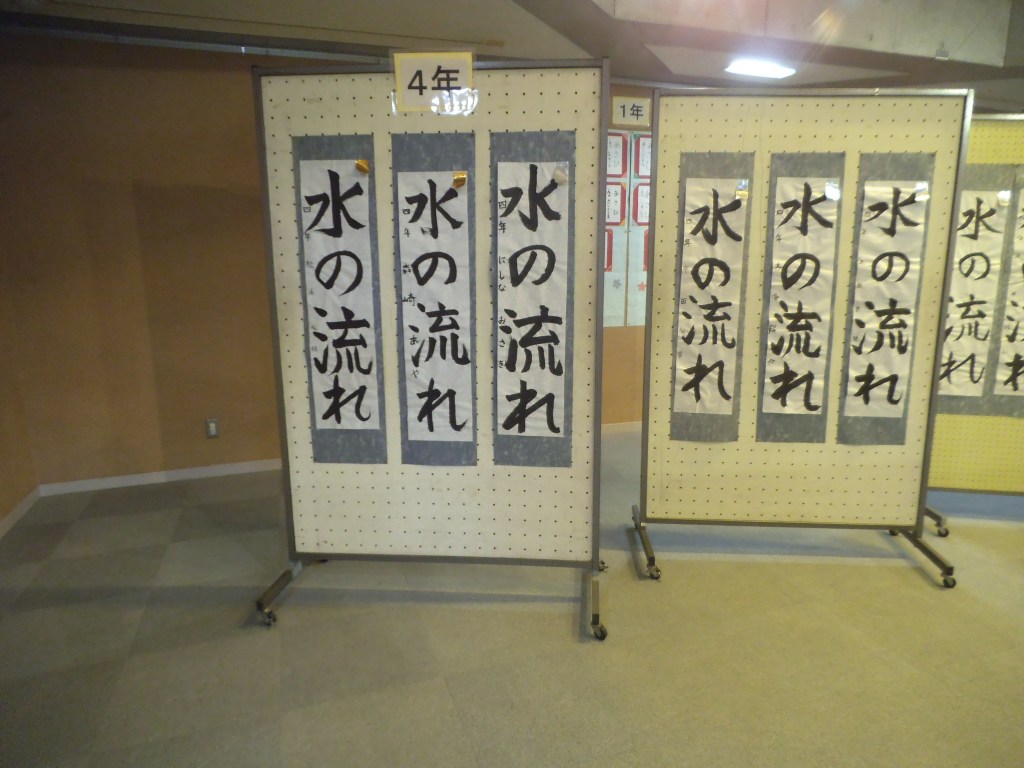 4年
1年
水の流れ
四年
水の流れ
四年
水の流れ
四年 にしな おさき
水の流れ
水の流れ
水の流れ
水の流れ